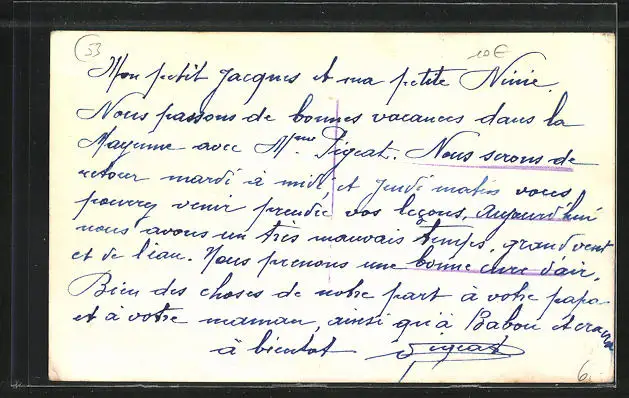 53
10€
Mon petit Jacques et ma petite Ninie.
Nous passons de bonnes vacances dans la
Mayenne avec Mme Pigeat. Nous serons de
retour mardi à midi, et jeudi matin vous
pourrez venir prendre vos leçons, aujourd'hui
nous avons un très mauvais temps, grand vent
et de l'eau. Nous prenons une bonne cure d'air.
Bien des choses de notre part à votre papa
et à votre maman, ainsi qu'à Babou et
à bientot
6.